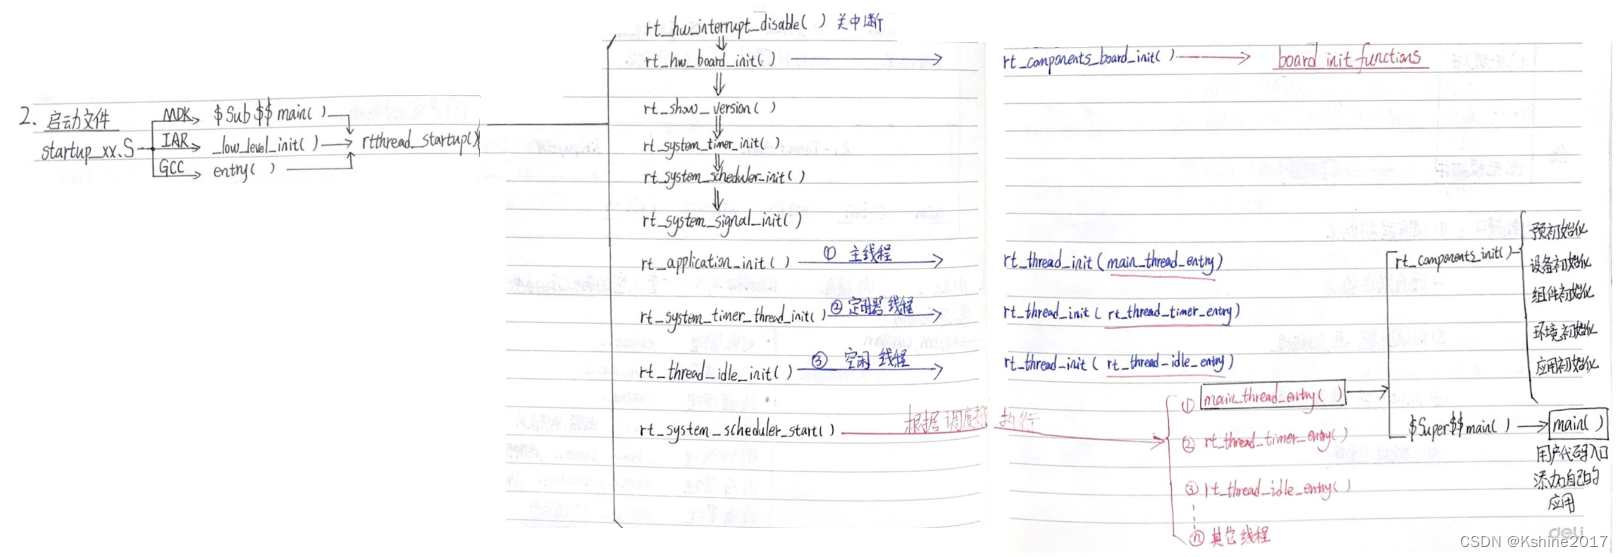 2. 启动文件
startup_xx.S
MDK $Sub$$main( )
IAR _low_level_init( )
GCC entry( )
rtthread_startup()
rt_hw_interrupt_disable( ) 关中断
rt_hw_board_init( )
rt_components_board_init( )
board init functions
rt_show_version( )
rt_system_timer_init( )
rt_system_scheduler_init( )
rt_system_signal_init( )
rt_application_init( ) ① 主线程
rt_thread_init( main_thread_entry)
rt_system_timer_thread_init( ) ② 定时器线程
rt_thread_init( rt_thread_timer_entry)
rt_thread_idle_init( ) ③ 空闲线程
rt_thread_init( rt_thread_idle_entry)
rt_system_scheduler_start( ) 根据调度器执行
① main_thread_entry( )
② rt_thread_timer_entry( )
③ rt_thread_idle_entry( )
ⓝ 其它线程
rt_components_init( )
预初始化
设备初始化
组件初始化
环境初始化
应用初始化
$Super$$main( ) main( )
用户代码入口
添加自己的
应用
deli
CSDN @Kshine2017